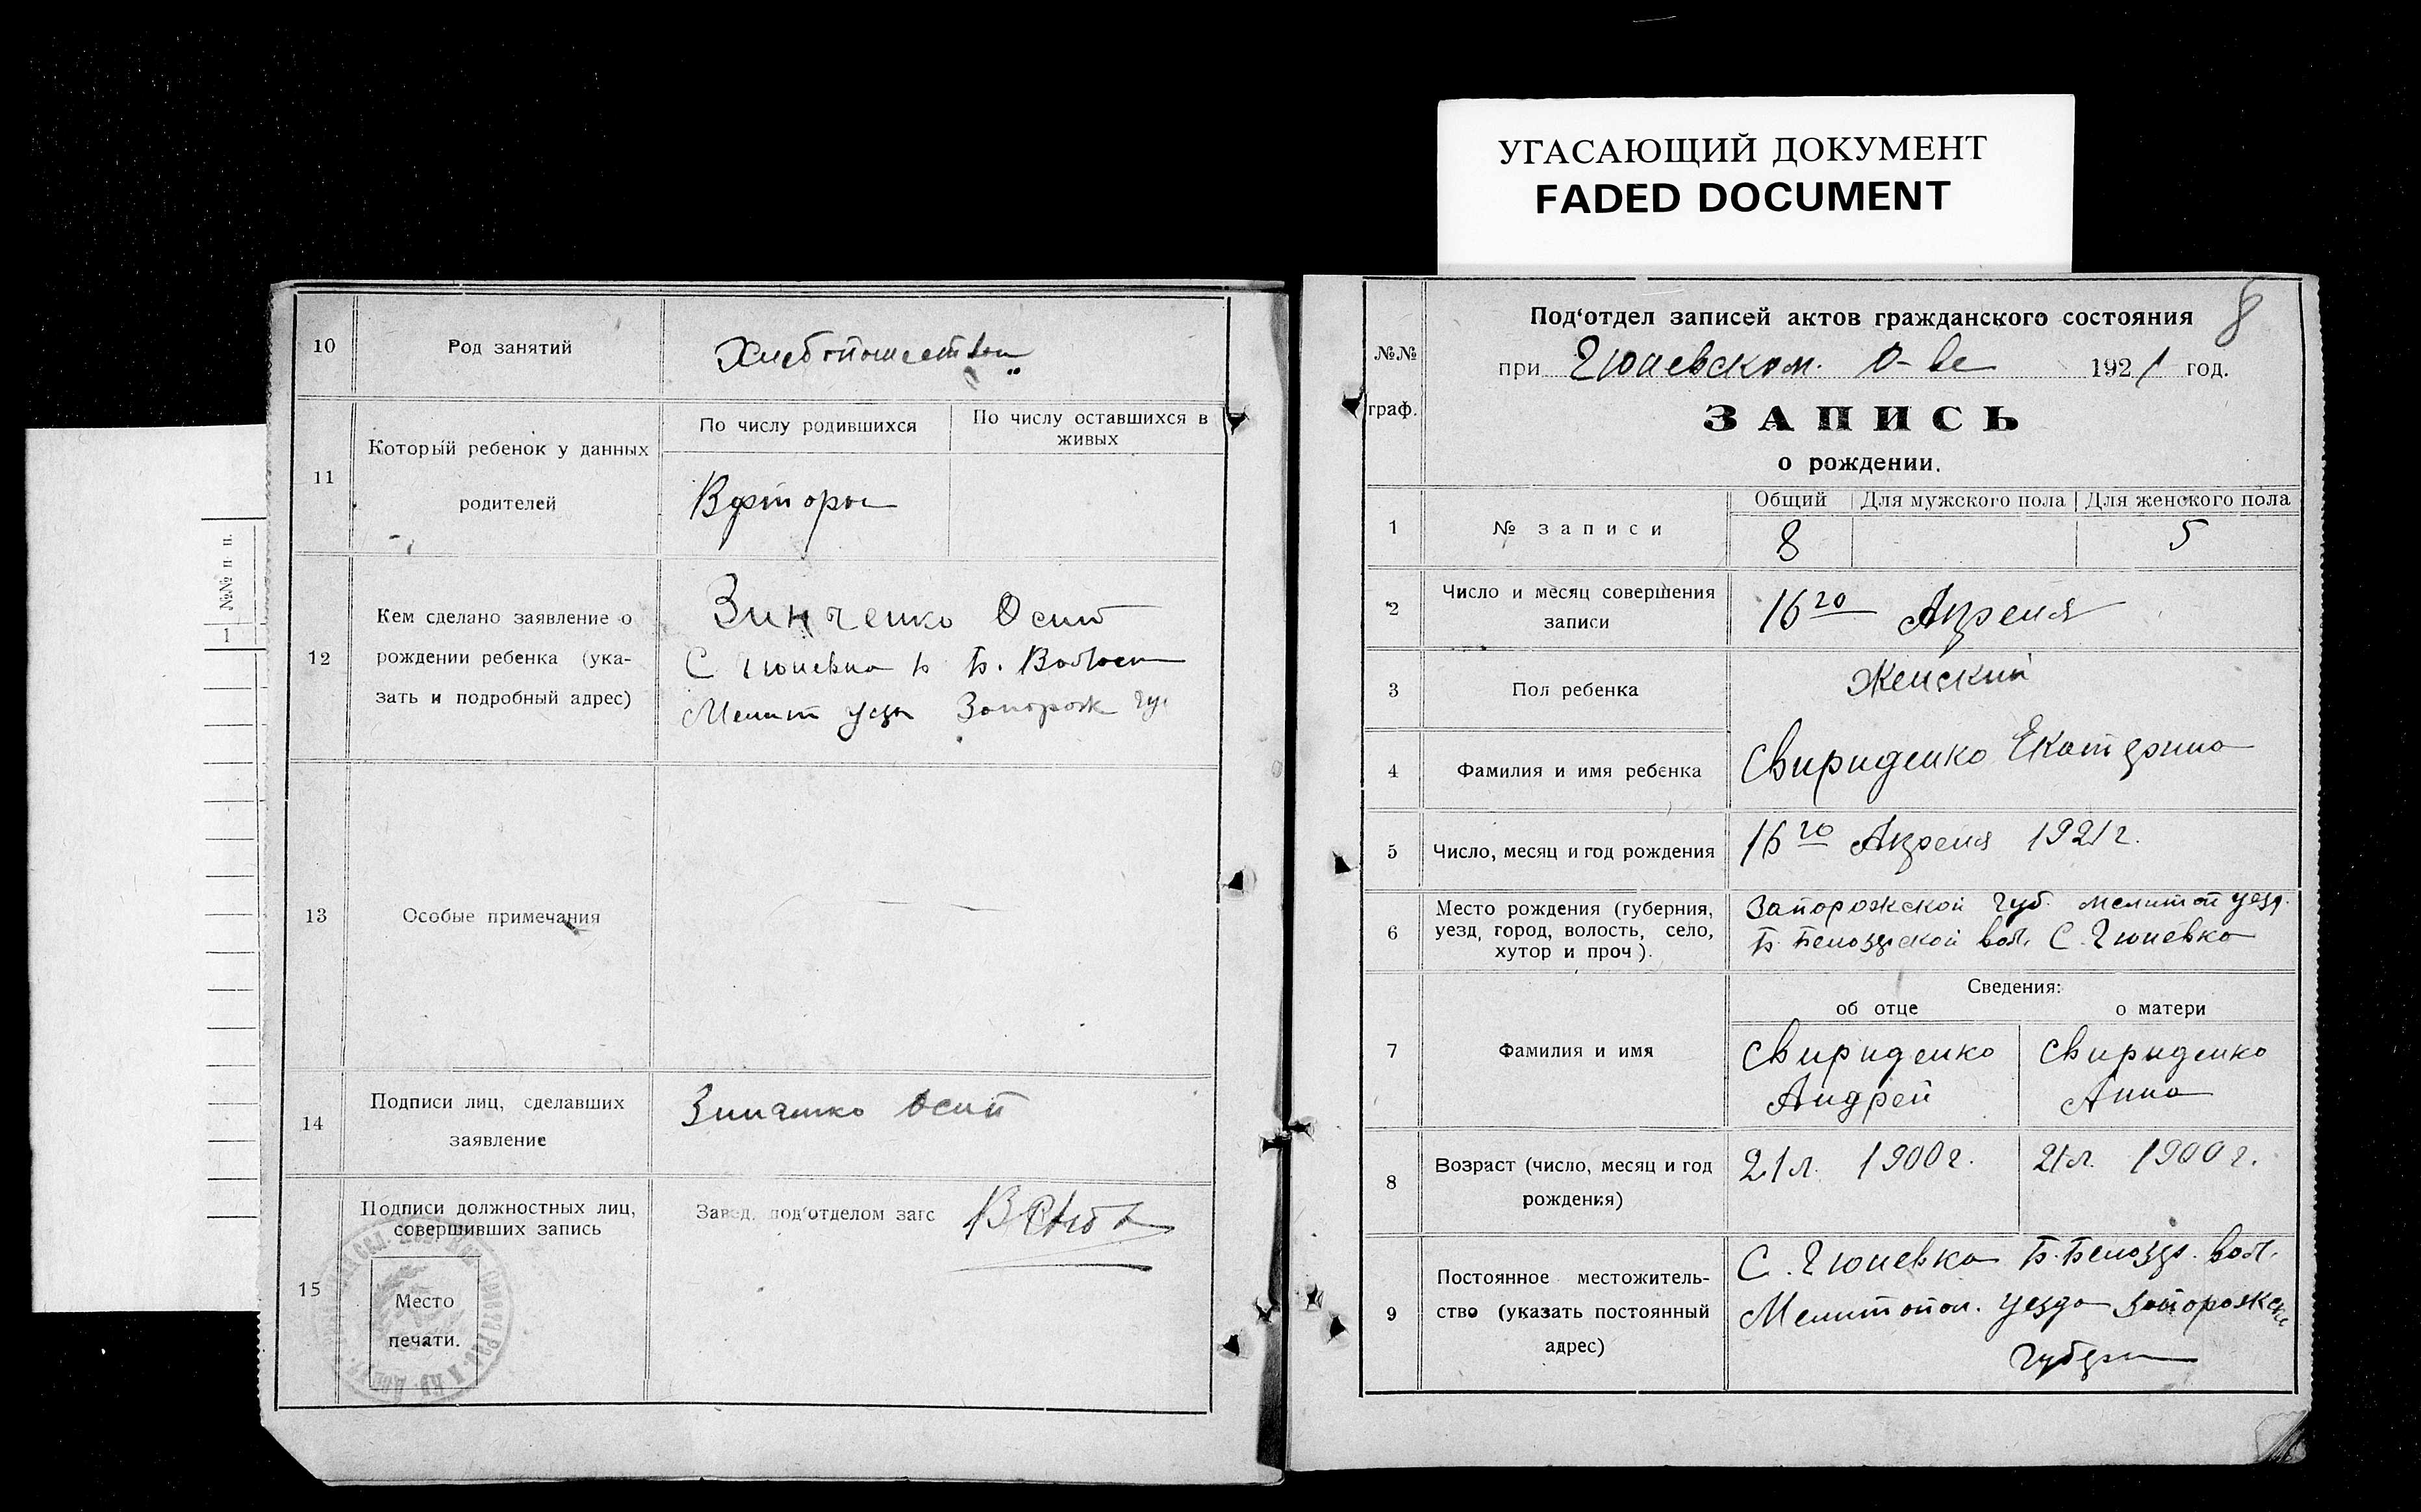 УГАСАЮЩИЙ ДОКУМЕНТ
FADED DOCUMENT
№№ п п.
1
10
Род занятий
11
Который ребенок у данных
родителей
По числу родившихся
По числу оставшихся в
живых
12
Кем сделано заявление о
рождении ребенка (ука-
зать и подробный адрес)
Зинченко Осип
С Гюневка Б Б. Волост
Мелит уезд Запорож гу
13
Особые примечания
14
Подписи лиц, сделавших
заявление
Осип
15
Подписи должностных лиц,
совершивших запись
Место
печати.
Завед. под'отделом загс
8
№№
граф.
Под'отдел записей актов гражданского состояния
при Гюневском. О-ве 1921 год.
ЗАПИСЬ
о рождении.
1
№ записи
Общий
Для мужского пола
Для женского пола
8
5
2
Число и месяц совершения
записи
16го Апреля
3
Пол ребенка
Женский
4
Фамилия и имя ребенка
Свириденко Екатерина
5
Число, месяц и год рождения
16го Апреля 1921г.
6
Место рождения (губерния,
уезд, город, волость, село,
хутор и проч).
Запорожской губ. Мелитоп уезд.
Б. Белозерской вол. С. Гюневка
Сведения:
об отце
о матери
7
Фамилия и имя
Свириденко
Андрей
Свириденко
Анна
8
Возраст (число, месяц и год
рождения)
21л. 1900г.
21л. 1900г.
9
Постоянное местожитель-
ство (указать постоянный
адрес)
С. Гюневка Б. Белозер. вол.
Мелитопол. уезда Запорожск
Губерн